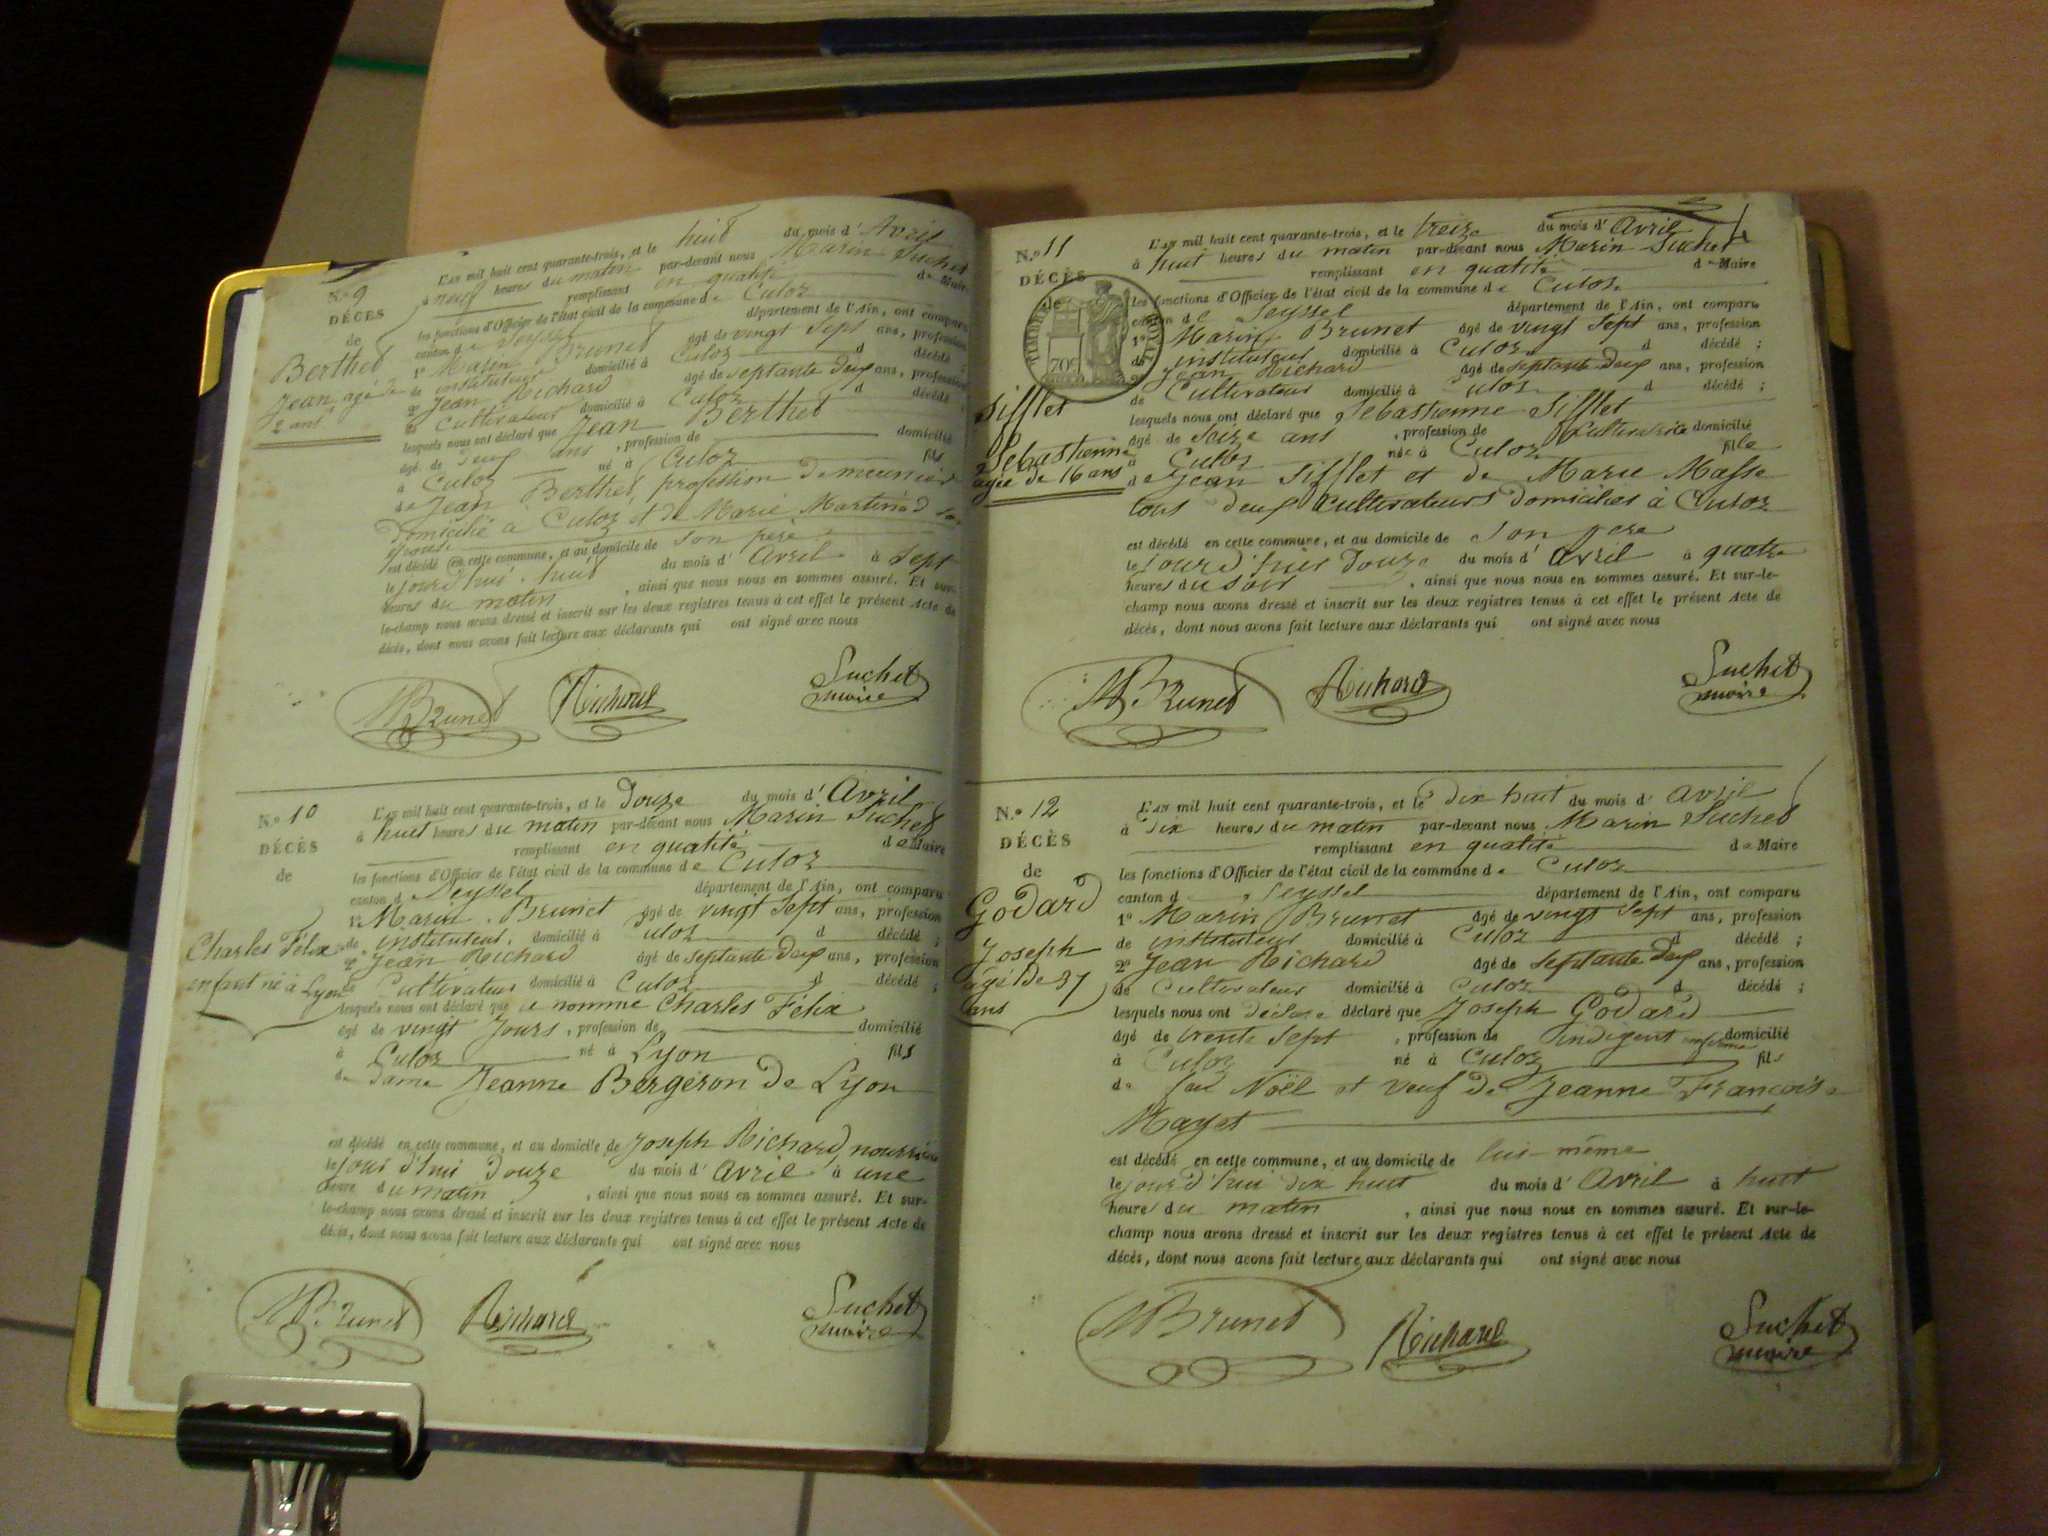 N.º 9
DÉCÈS
de
Berthet
Jean agé de
2 ans
L'AN mil huit cent quarante-trois, et le huit du mois d'Avril
à neuf heures du matin par-devant nous Marin Suchet
remplissant en qualité de Maire
les fonctions d'Officier de l'état civil de la commune de Culoz
canton de Seyssel département de l'Ain, ont comparu
1º Marin Brunet âgé de vingt Sept ans, profession
de instituteur domicilié à Culoz d décédé ;
2º Jean Richard âgé de septante deux ans, profession
de Cultivateur domicilié à Culoz d décédé ;
lesquels nous ont déclaré que Jean Berthet
âgé de deux ans , profession de domicilié
à Culoz né à Culoz fils
de Jean Berthet, profession de meunier
domicilié à Culoz et de Marie Martinod son
épouse
est décédé en cette commune, et au domicile de son père
le jourd'hui huit du mois d'Avril à sept
heures du matin , ainsi que nous nous en sommes assuré. Et sur-
le-champ nous avons dressé et inscrit sur les deux registres tenus à cet effet le présent Acte de
décès, dont nous avons fait lecture aux déclarants qui ont signé avec nous
M Brunet Richard Suchet
maire
N.º 10
DÉCÈS
de
Charles Félix
enfant né à Lyon
L'AN mil huit cent quarante-trois, et le Douze du mois d'Avril
à huit heures du matin par-devant nous Marin Suchet
remplissant en qualité de Maire
les fonctions d'Officier de l'état civil de la commune de Culoz
canton d Seyssel département de l'Ain, ont comparu
1º Marin Brunet âgé de vingt Sept ans, profession
de instituteur domicilié à Culoz d décédé ;
2º Jean Richard âgé de septante deux ans, profession
de Cultivateur domicilié à Culoz d décédé ;
lesquels nous ont déclaré que le nommé Charles Félix
âgé de vingt Jours , profession de domicilié
à Culoz né à Lyon fils
de Dame Jeanne Bergeron de Lyon
est décédé en cette commune, et au domicile de Joseph Richard,
le jour d'hui douze du mois d'Avril à une
heure du matin , ainsi que nous nous en sommes assuré. Et sur-
le-champ nous avons dressé et inscrit sur les deux registres tenus à cet effet le présent Acte de
décès, dont nous avons fait lecture aux déclarants qui ont signé avec nous
M Brunet Richard Suchet
maire
N.º 11
DÉCÈS
de
TIMBRE ROYAL
70c
Sifflet
Sébastienne
agée de 16 ans
L'AN mil huit cent quarante-trois, et le treize du mois d'Avril
à huit heures du matin par-devant nous Marin Suchet
remplissant en qualité de Maire
les fonctions d'Officier de l'état civil de la commune de Culoz
canton de Seyssel département de l'Ain, ont comparu
1º Marin Brunet âgé de vingt Sept ans, profession
de instituteur domicilié à Culoz d décédé ;
2º Jean Richard âgé de septante deux ans, profession
de Cultivateur domicilié à Culoz d décédé ;
lesquels nous ont déclaré que Sebastienne Sifflet
âgé de Seize ans , profession de Cultivatrice domicilié
à Culoz née à Culoz fille
de Jean Sifflet et de Marie Masse
tous deux Cultivateurs domiciliés à Culoz
est décédé en cette commune, et au domicile de son pere
le jourd'huit Douze du mois d'Avril à quatre
heures du soir , ainsi que nous nous en sommes assuré. Et sur-le-
champ nous avons dressé et inscrit sur les deux registres tenus à cet effet le présent Acte de
décès, dont nous avons fait lecture aux déclarants qui ont signé avec nous
M Brunet Richard Suchet
maire
N.º 12
DÉCÈS
de
Godard
Joseph
agé de 37
ans
L'AN mil huit cent quarante-trois, et le dix huit du mois d'Avril
à dix heures du matin par-devant nous Marin Suchet
remplissant en qualité de Maire
les fonctions d'Officier de l'état civil de la commune de Culoz
canton d Seyssel département de l'Ain, ont comparu
1º Marin Brunet âgé de vingt Sept ans, profession
de instituteur domicilié à Culoz d décédé ;
2º Jean Richard âgé de septante deux ans, profession
de Cultivateur domicilié à Culoz d décédé ;
lesquels nous ont déclaré que Joseph Godard
âgé de trente Sept , profession de indigent infirme domicilié
à Culoz né à Culoz fils
de feu Noël et veuf de Jeanne Françoise
Mayet
est décédé en cette commune, et au domicile de lui-même
le jour d'hui dix huit du mois d'Avril à huit
heures du matin , ainsi que nous nous en sommes assuré. Et sur-le-
champ nous avons dressé et inscrit sur les deux registres tenus à cet effet le présent Acte de
décès, dont nous avons fait lecture aux déclarants qui ont signé avec nous
M Brunet Richard Suchet
maire